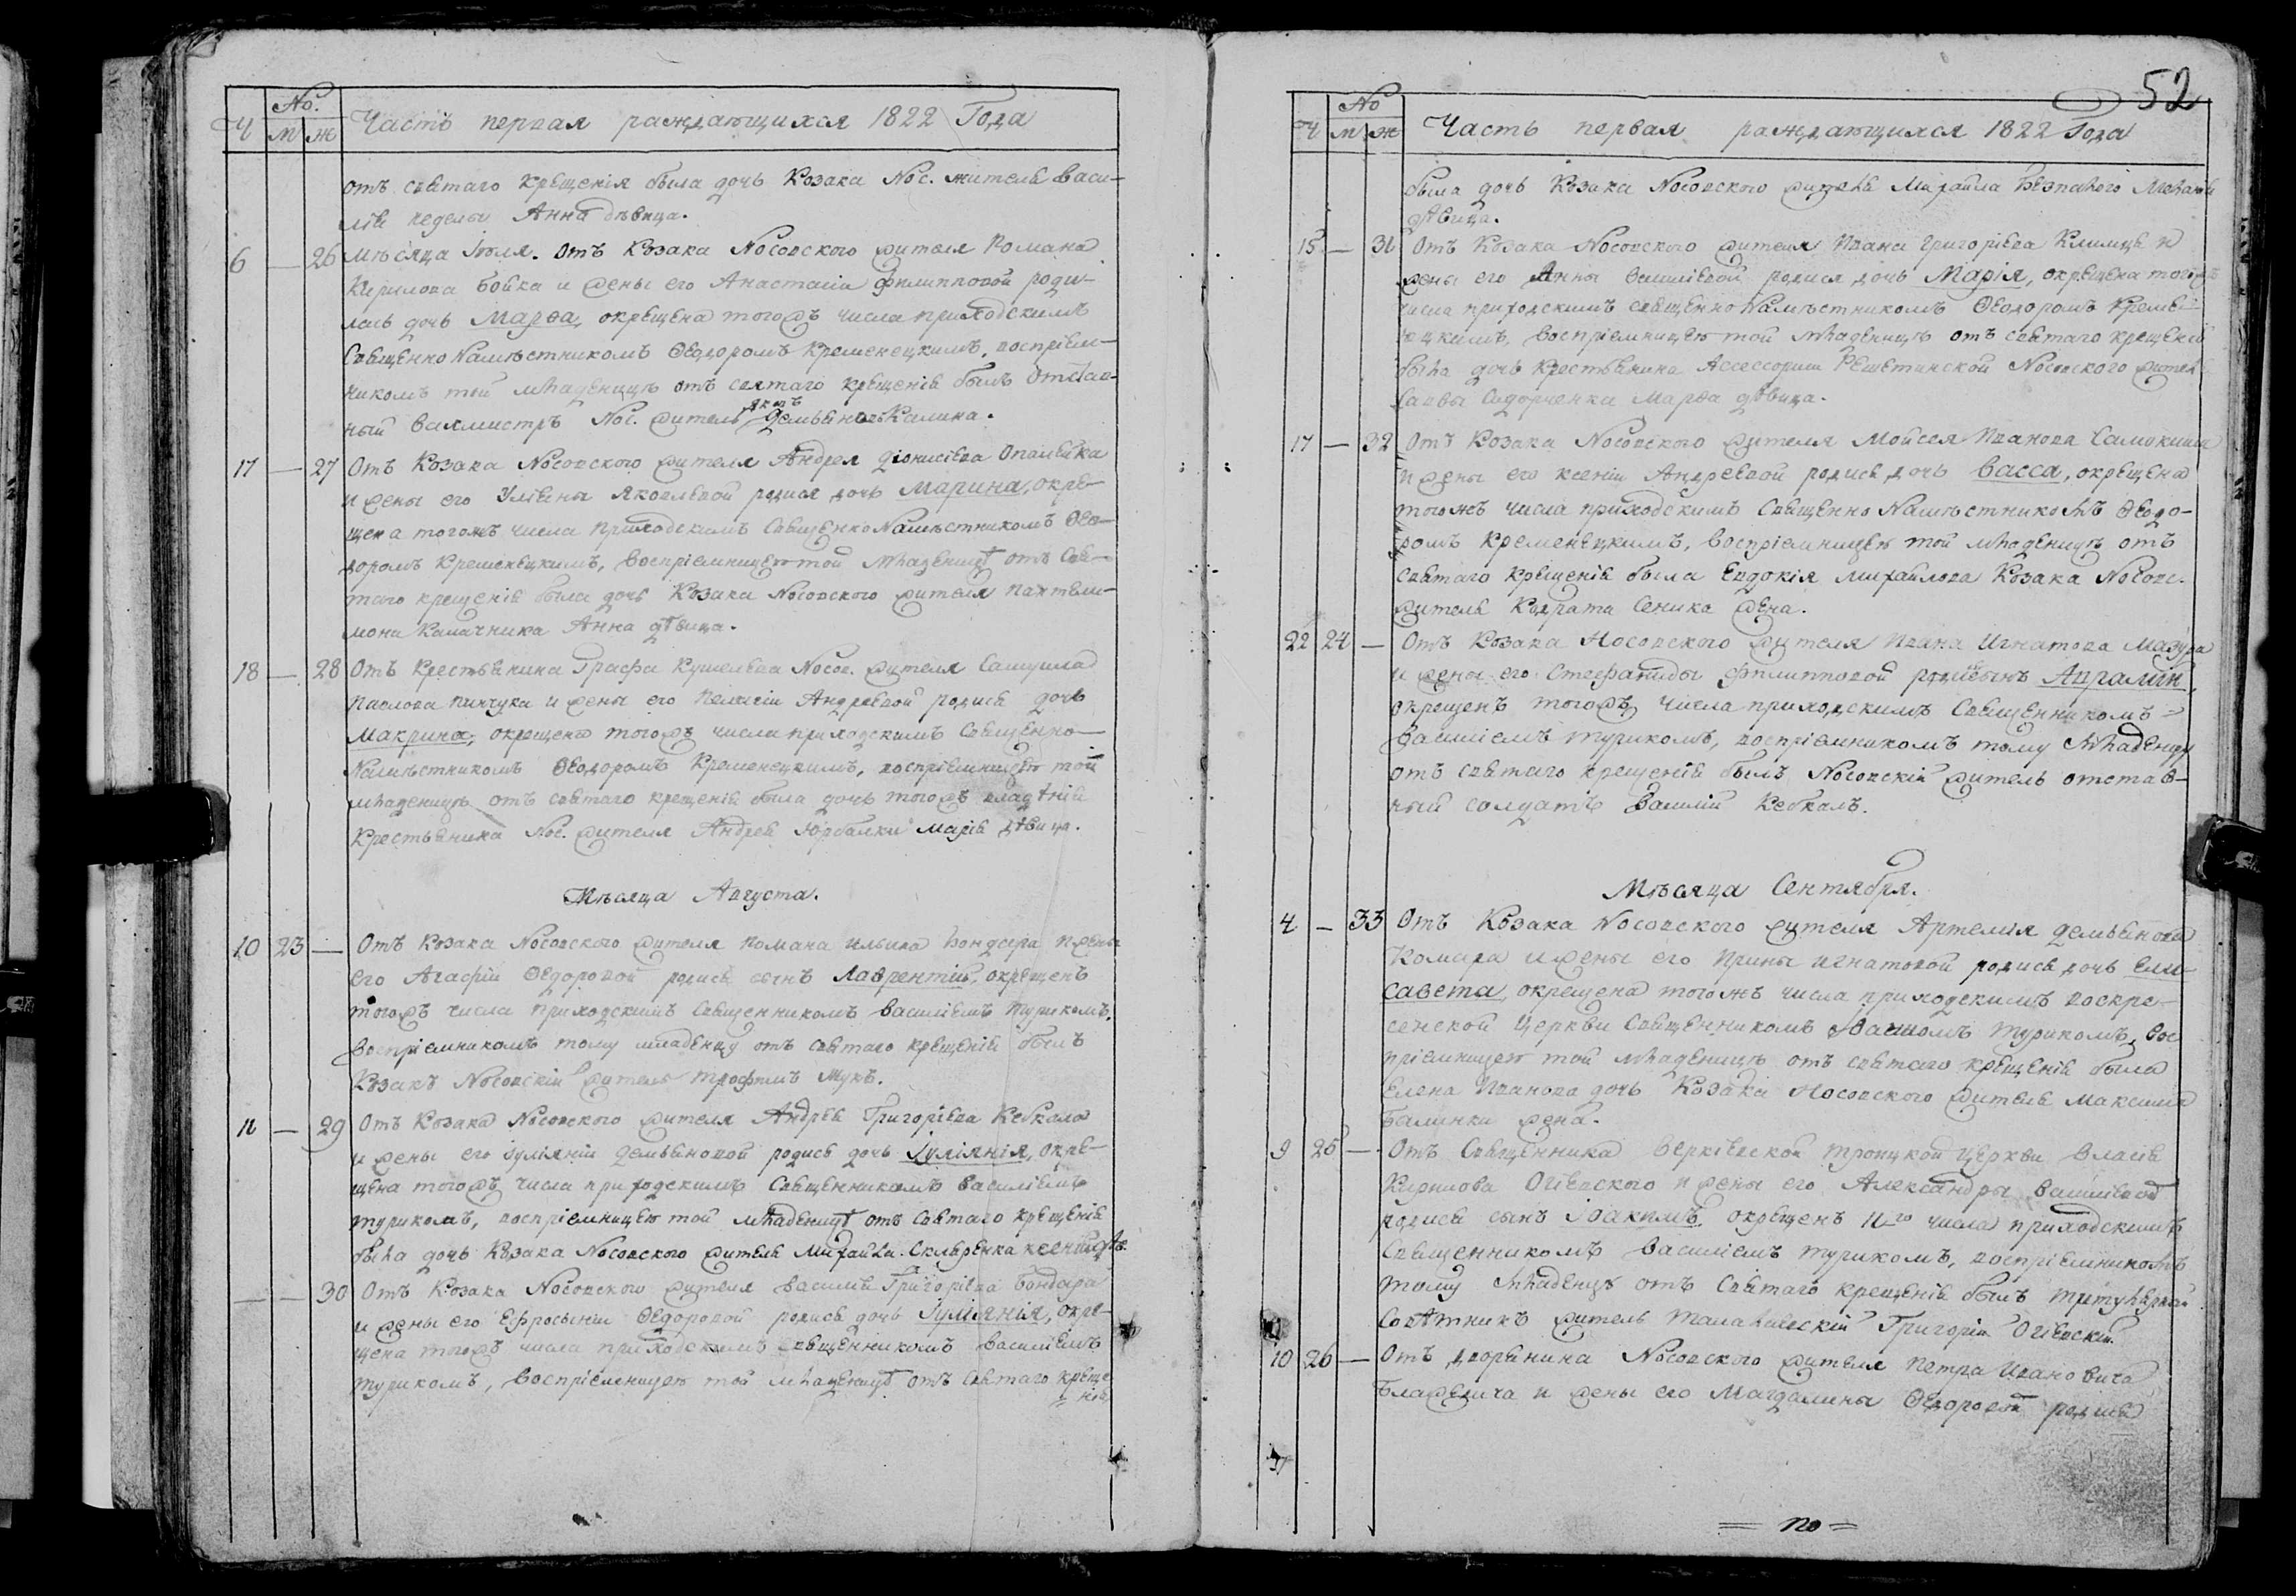 No.
Ч М Ж Часть первая раждающихся 1822 Года
отъ святаго крещенія была дочь Козака Нос. жителя Васи-
лія Анна дѣвица.
6 — 26 Мѣсяца Іюля. Отъ Козака Носовского жителя Романа
Кирилова Бойка и жены его Анастасіи Филипповой роди-
лась дочь Марѳа, окрещена тогожъ числа приходскимъ
Священно Намѣстникомъ Ѳеодоромъ Кременецкимъ, воспріем-
никомъ той младеницѣ отъ святаго крещенія былъ Отстав-
ный Вахмистръ Нос. житель Демьянъ Калина.
17 — 27 Отъ Козака Носовского жителя Андрея Діонисіева Опалейка
и жены его Уліяны Яковлевой родися дочь Марина, окре-
щена тогожъ числа приходскимъ Священно Намѣстникомъ Ѳео-
доромъ Кременецкимъ, воспріемницею той младеницѣ отъ Свя-
таго крещенія была дочь Козака Носовского жителя Пантели-
мона Калачника Анна дѣвица.
18 — 28 Отъ Крестьянина Графа Кушелева Носов. жителя Самуила
Павлова Пинчука и жены его Пелагіи Андреевой родися дочь
Макрина, окрещена тогожъ числа приходскимъ Священно-
Намѣстникомъ Ѳеодоромъ Кременецкимъ, воспріемницею той
младеницѣ отъ святаго крещенія была дочь тогожъ владѣнія
Крестьянина Нос. жителя Андрея Марія дѣвица.
Мѣсяца Августа.
10 23 — Отъ Козака Носовского жителя Романа Ильина Бондаря и жены
его Агафіи Ѳедоровой родися сынъ Лаврентій, окрещенъ
тогожъ числа приходскимъ Священникомъ Василіемъ Турикомъ,
воспріемникомъ тому младенцу отъ святаго крещенія былъ
Козакъ Носовскій житель Трофимъ Мукъ.
11 — 29 Отъ Козака Носовского жителя Андрея Григоріева Кебкала
и жены его Іуліяніи Демьяновой родися дочь Іуліянія, окре-
щена тогожъ числа приходскимъ Священникомъ Василіемъ
Турикомъ, воспріемницею той младеницѣ отъ Святаго крещенія
была дочь Козака Носовского жителя Михайла Скляренка Ксенія дѣв.
— — 30 Отъ Козака Носовского жителя Василія Григоріева Бондаря
и жены его Ефросиніи Ѳедоровой родися дочь Іуліянія, окре-
щена тогожъ числа приходскимъ Священникомъ Василіемъ
Турикомъ, воспріемницею той младеницѣ отъ Святаго креще-
нія
52
No
Ч М Ж Часть первая раждающихся 1822 Года
была дочь Козака Носовского жителя Михайла Безпалого Меланія
дѣвица.
15 — 31 Отъ Козака Носовского жителя Ивана Григоріева Клишца и
жены его Анны Василіевой родися дочь Марія, окрещена тогожъ
числа приходскимъ Священно Намѣстникомъ Ѳеодоромъ Креме-
нецкимъ, воспріемницею той младеницѣ отъ святаго крещенія
была дочь крестьянина Ассессорши Решетинской Носовского жителя
Саввы Сидорченка Марѳа дѣвица.
17 — 32 Отъ Козака Носовского жителя Мойсея Иванова Самокиши
и жены его Ксеніи Андреевой родися дочь Васса, окрещена
тогожъ числа приходскимъ Священно Намѣстникомъ Ѳеодо-
ромъ Кременецкимъ, воспріемницею той младеницѣ отъ
святаго крещенія была Евдокія Михайлова Козака Носовс.
жителя Кодрата Сеника жена.
22 24 — Отъ Козака Носовского жителя Ивана Игнатова Мазура
и жены его Стефаниды Филипповой родися сынъ
окрещенъ тогожъ числа приходскимъ Священникомъ
Василіемъ Турикомъ, воспріемникомъ тому младенцу
отъ святаго крещенія былъ Носовскій житель отстав-
ный солдатъ Василій Кебкалъ.
Мѣсяца Сентября.
4 — 33 Отъ Козака Носовского жителя Артемія Демьянова
Комара и жены его Ирины Игнатовой родися дочь Ели-
савета, окрещена тогожъ числа приходскимъ Воскре-
сенской Церкви Священникомъ Турикомъ, вос-
пріемницею той младеницѣ отъ святаго крещенія была
Елена Иванова дочь Козака Носовского жителя Максима
Былинки жена.
9 25 — Отъ Священника Верькіевской Троицкой Церкви Власія
Кирилова Огіевского и жены его Александры Василіевой
родися сынъ Іоакимъ, окрещенъ 11го числа приходскимъ
Священникомъ Василіемъ Турикомъ, воспріемникомъ
тому младенцу отъ Святаго крещенія былъ Титулярный
Совѣтникъ житель Талалаевскій Григорій Огіевскій.
10 26 — Отъ дворянина Носовского жителя Петра Ивановича
Блажевича и жены его Магдалины Ѳедоровой родися
= по =